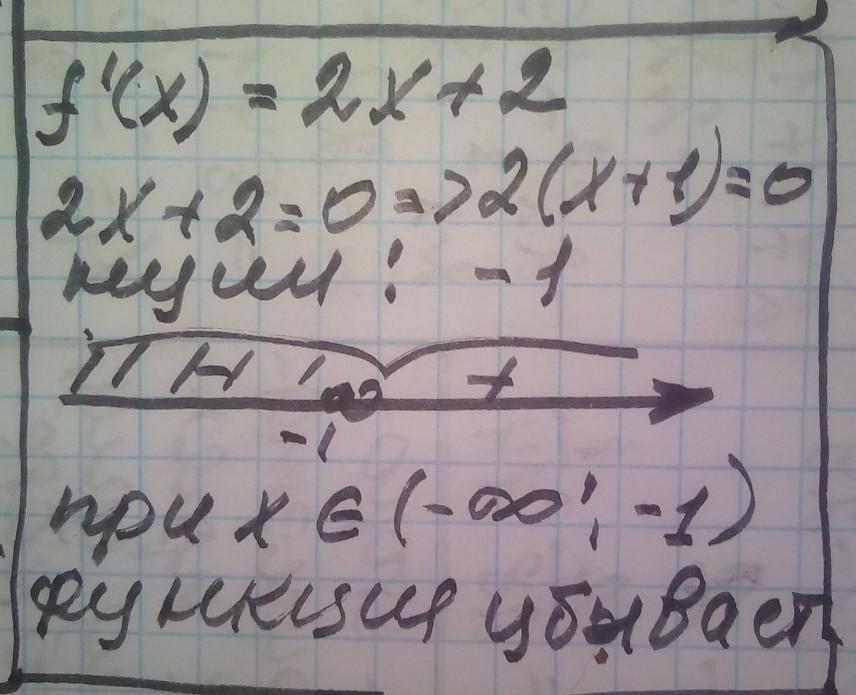 f'(x) = 2x + 2
2x + 2 = 0 => 2(x+1) = 0
нули : -1
+
-1
при x ∈ (-∞; -1)
функция убывает